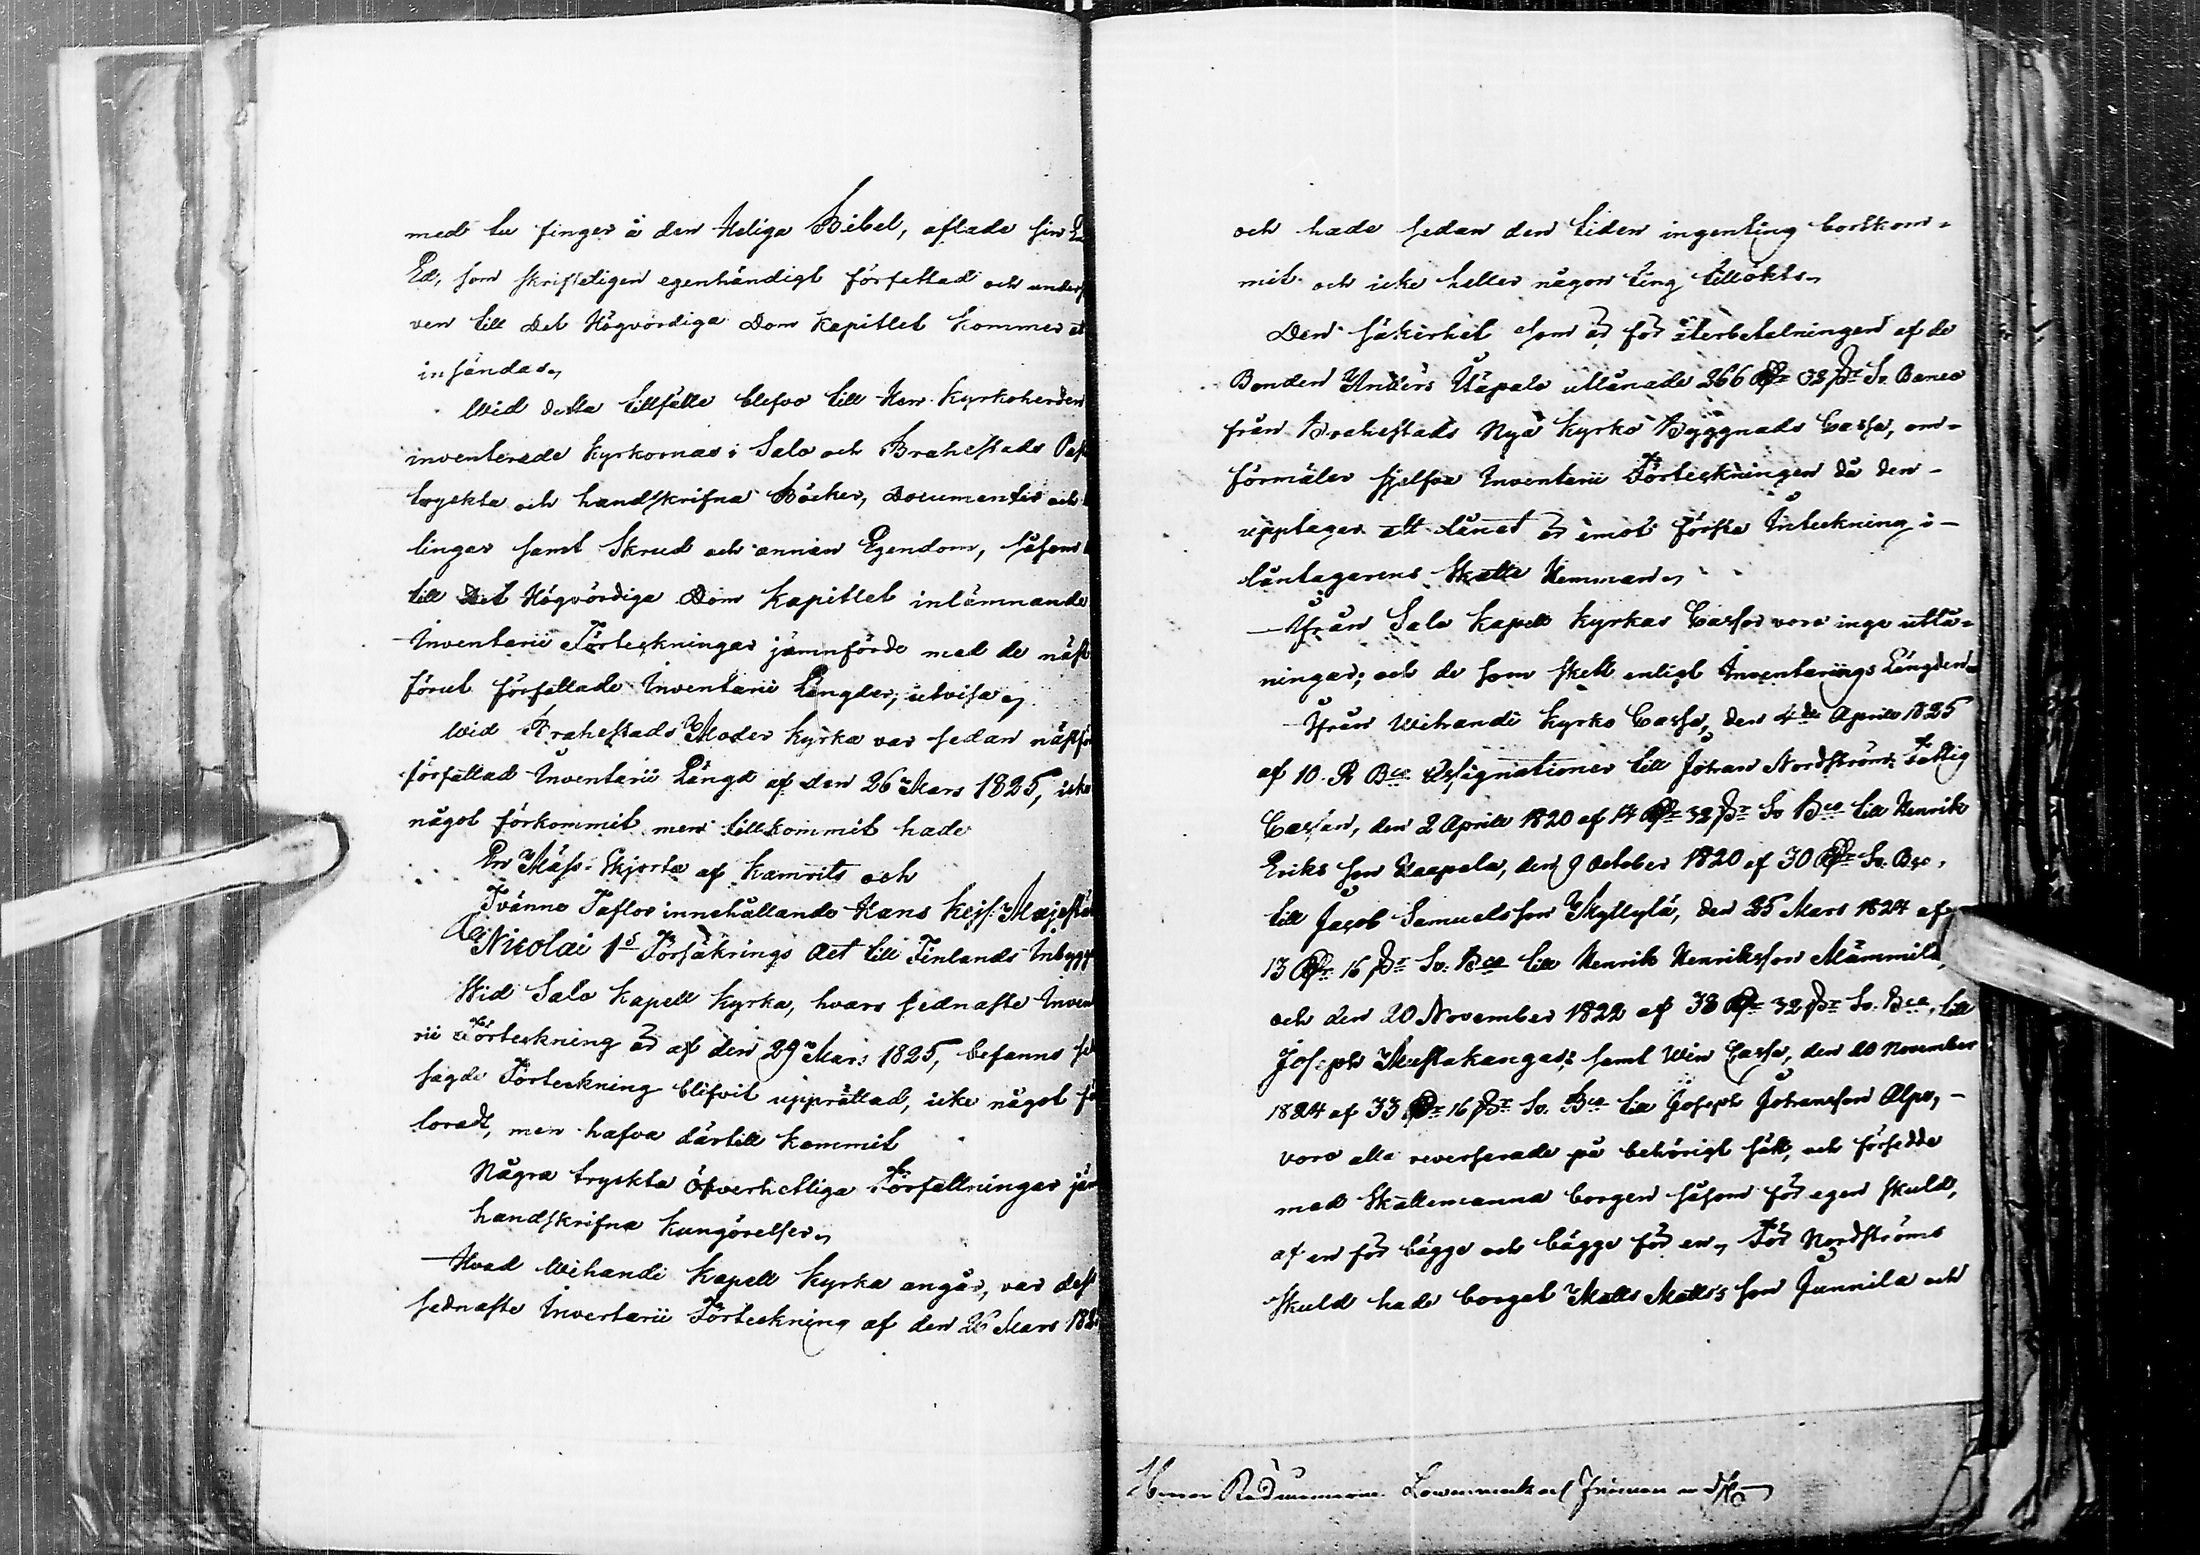 med tu finger å den Heliga Bibel, aflade sin
Ed, som skrifteligen egenhändigt författad och unders
ven till Det Högvördiga Dom Kapitlet kommer at
insändas,
Wid detta tillfälle blefvo till Herr Kyrkoherden
inventerade Kyrkornas i Salo och Brahestads Past
tryckta och handskrifna Böcker, Documenter och
lingar samt Skrud och annan Egendom, såsom
till Det Högvördiga Dom Kapitlet inlämnande
Inventarii Förteckningar jämnförde med de näst
förut författade Inventarii Längder, utvisa,
Wid Brahestads Moder Kyrka var sedan nästför
författad Inventarii Längd af den 26 Mars 1825, icke
något förkommit men tillkommit hade
En Mäss-Skjorta af Kamrits och
Tvänne Taflor innehållande Hans Kejs. Majestät
Nicolai 1s Försäkrings Act till Finlands Inbygg
Wid Salo Kapell Kyrka, hvars sednaste Inven
rii Förteckning är af den 29 Mars 1825, befanns se
sagde Förteckning blifvit upprättad, icke något fö
loradt, men hafva därtill kommit
Några tryckta öfverhetliga Författningar jäm
handskrifna Kungörelser,
Hvad Wihandi Kapell Kyrka angår, var dess
sednaste Inventarii Förteckning af den 26 Mars 182
och hade sedan den tiden ingenting bortkom=
mit och icke heller någon ting tillökts,
Den säkerhet som är för återbetalningen af de
Bonden Anders Uäpalo utlånade 266 Rdr 32 sr Sv. Banco
från Brahestads Nya Kyrko Byggnads Cassa, om=
förmäler sjelfva Inventarii Förteckningen då den -
upptager att lånet är emot första Inteckning i -
låntagarens Skatte Hemman,
Ifrån Salo Kapell Kyrkas Cassor voro inga utlå=
ningar; och de som skett enligt Inventariigs Längden
Ifrån Wihandi Kyrko Cassa, den 4de Aprill 1825
af 10 R Bco Assignationer till Johan Nordström, Fattig
Cassan, den 2 Aprill 1820 af 14 Rdr 32 sr Sv Bco till Henrik
Eriks son Haapala, den 9 October 1820 af 30 Rdr Sv. Bco,
till Jacob Samuelsson Myllylä, den 25 Mars 1824 af
13 Rdr 16 sr Sv. Bco till Henrik Henriksson Mämmilä,
och den 20 November 1822 af 38 Rdr 32 sr Sv. Bco, till
Joseph Mustakangas; samt Win Cassa, den 20 November
1824 af 33 Rdr 16 sr Sv. Bco till Joseph Johansson Alpo, -
voro alla reverserade på behörigt sätt, och försedde
med Skattemanna borgen såsom för egen skuld,
af en för bägge och bägge för en, För Nordströms
skuld hade borgat Matts Matts son Junnila och
Herrar Rådmännerne